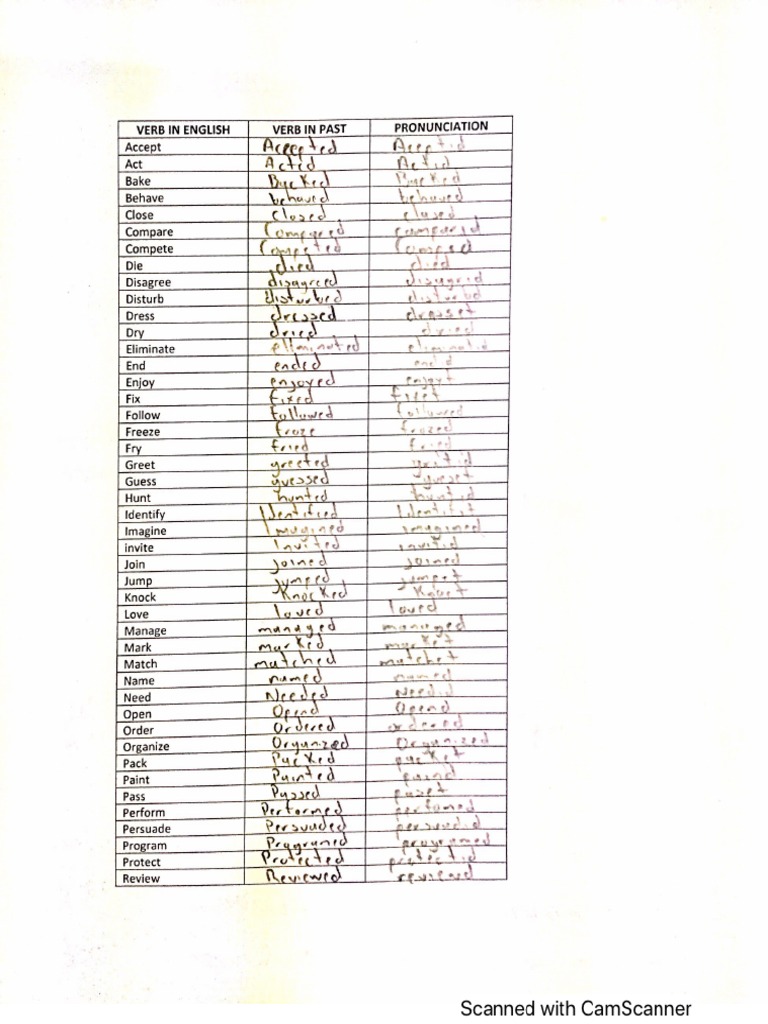 VERB IN ENGLISH VERB IN PAST PRONUNCIATION
Accept Accepted Aceptid
Act Acted Actid
Bake Backed Backed
Behave behaved behaved
Close closed closed
Compare Compared comparid
Compete Competed
Die died died
Disagree disagreed disagrid
Disturb disturbed disturbd
Dress dressed dresset
Dry dried dried
Eliminate eliminated eliminatid
End ended endid
Enjoy enjoyed enjoyt
Fix fixed fixet
Follow followed followed
Freeze froze frozed
Fry fried fried
Greet greeted gritid
Guess guessed gueset
Hunt hunted huntid
Identify Identified Identifit
Imagine Imagined imagined
invite Invited invitid
Join joined joined
Jump jumped jumpet
Knock Knocked Knoket
Love loved loved
Manage managed managed
Mark marked market
Match matched matchet
Name named named
Need Needed Needid
Open Opend Opend
Order Ordered ordered
Organize Organized Organized
Pack Packed packet
Paint Painted paind
Pass Passed paset
Perform Performed perfomed
Persuade Persuaded persuadid
Program Programed programed
Protect Protected protectid
Review Reviewed reviewed
Scanned with CamScanner